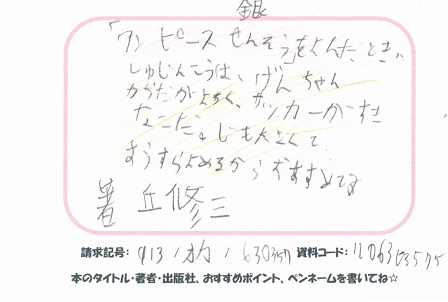 銀
「ワンピースせんそう」をよんだとき、
しゅじんこうは、げんちゃん
からだがよわく、サッカーがすき
なこだ。じも大きくて
すらすらよめるからおすすめです
著 丘修三
請求記号: 913 / オカ / 630357 資料コード:
本のタイトル・著者・出版社、おすすめポイント、ペンネームを書いてね☆